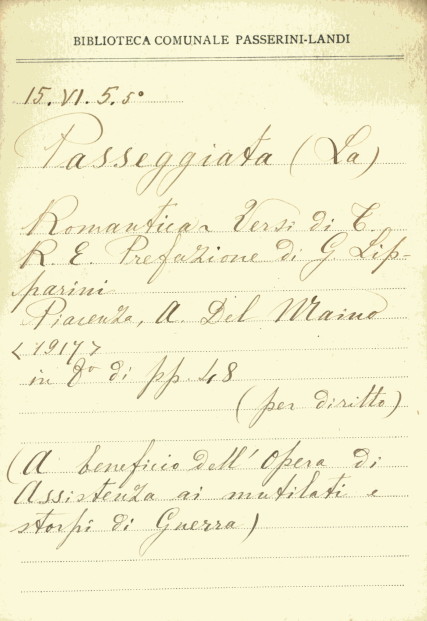 BIBLIOTECA COMUNALE PASSERINI-LANDI
15. VI. 5. 5°
Passeggiata (La)
Romantica - Versi di T.
R. E. Prefazione di G Lip-
parini
Piacenza, A. Del Maino
<1917>
in 8° di pp. 48
(per diritto)
(A beneficio dell' Opera di
Assistenza ai mutilati e
storpi di Guerra)